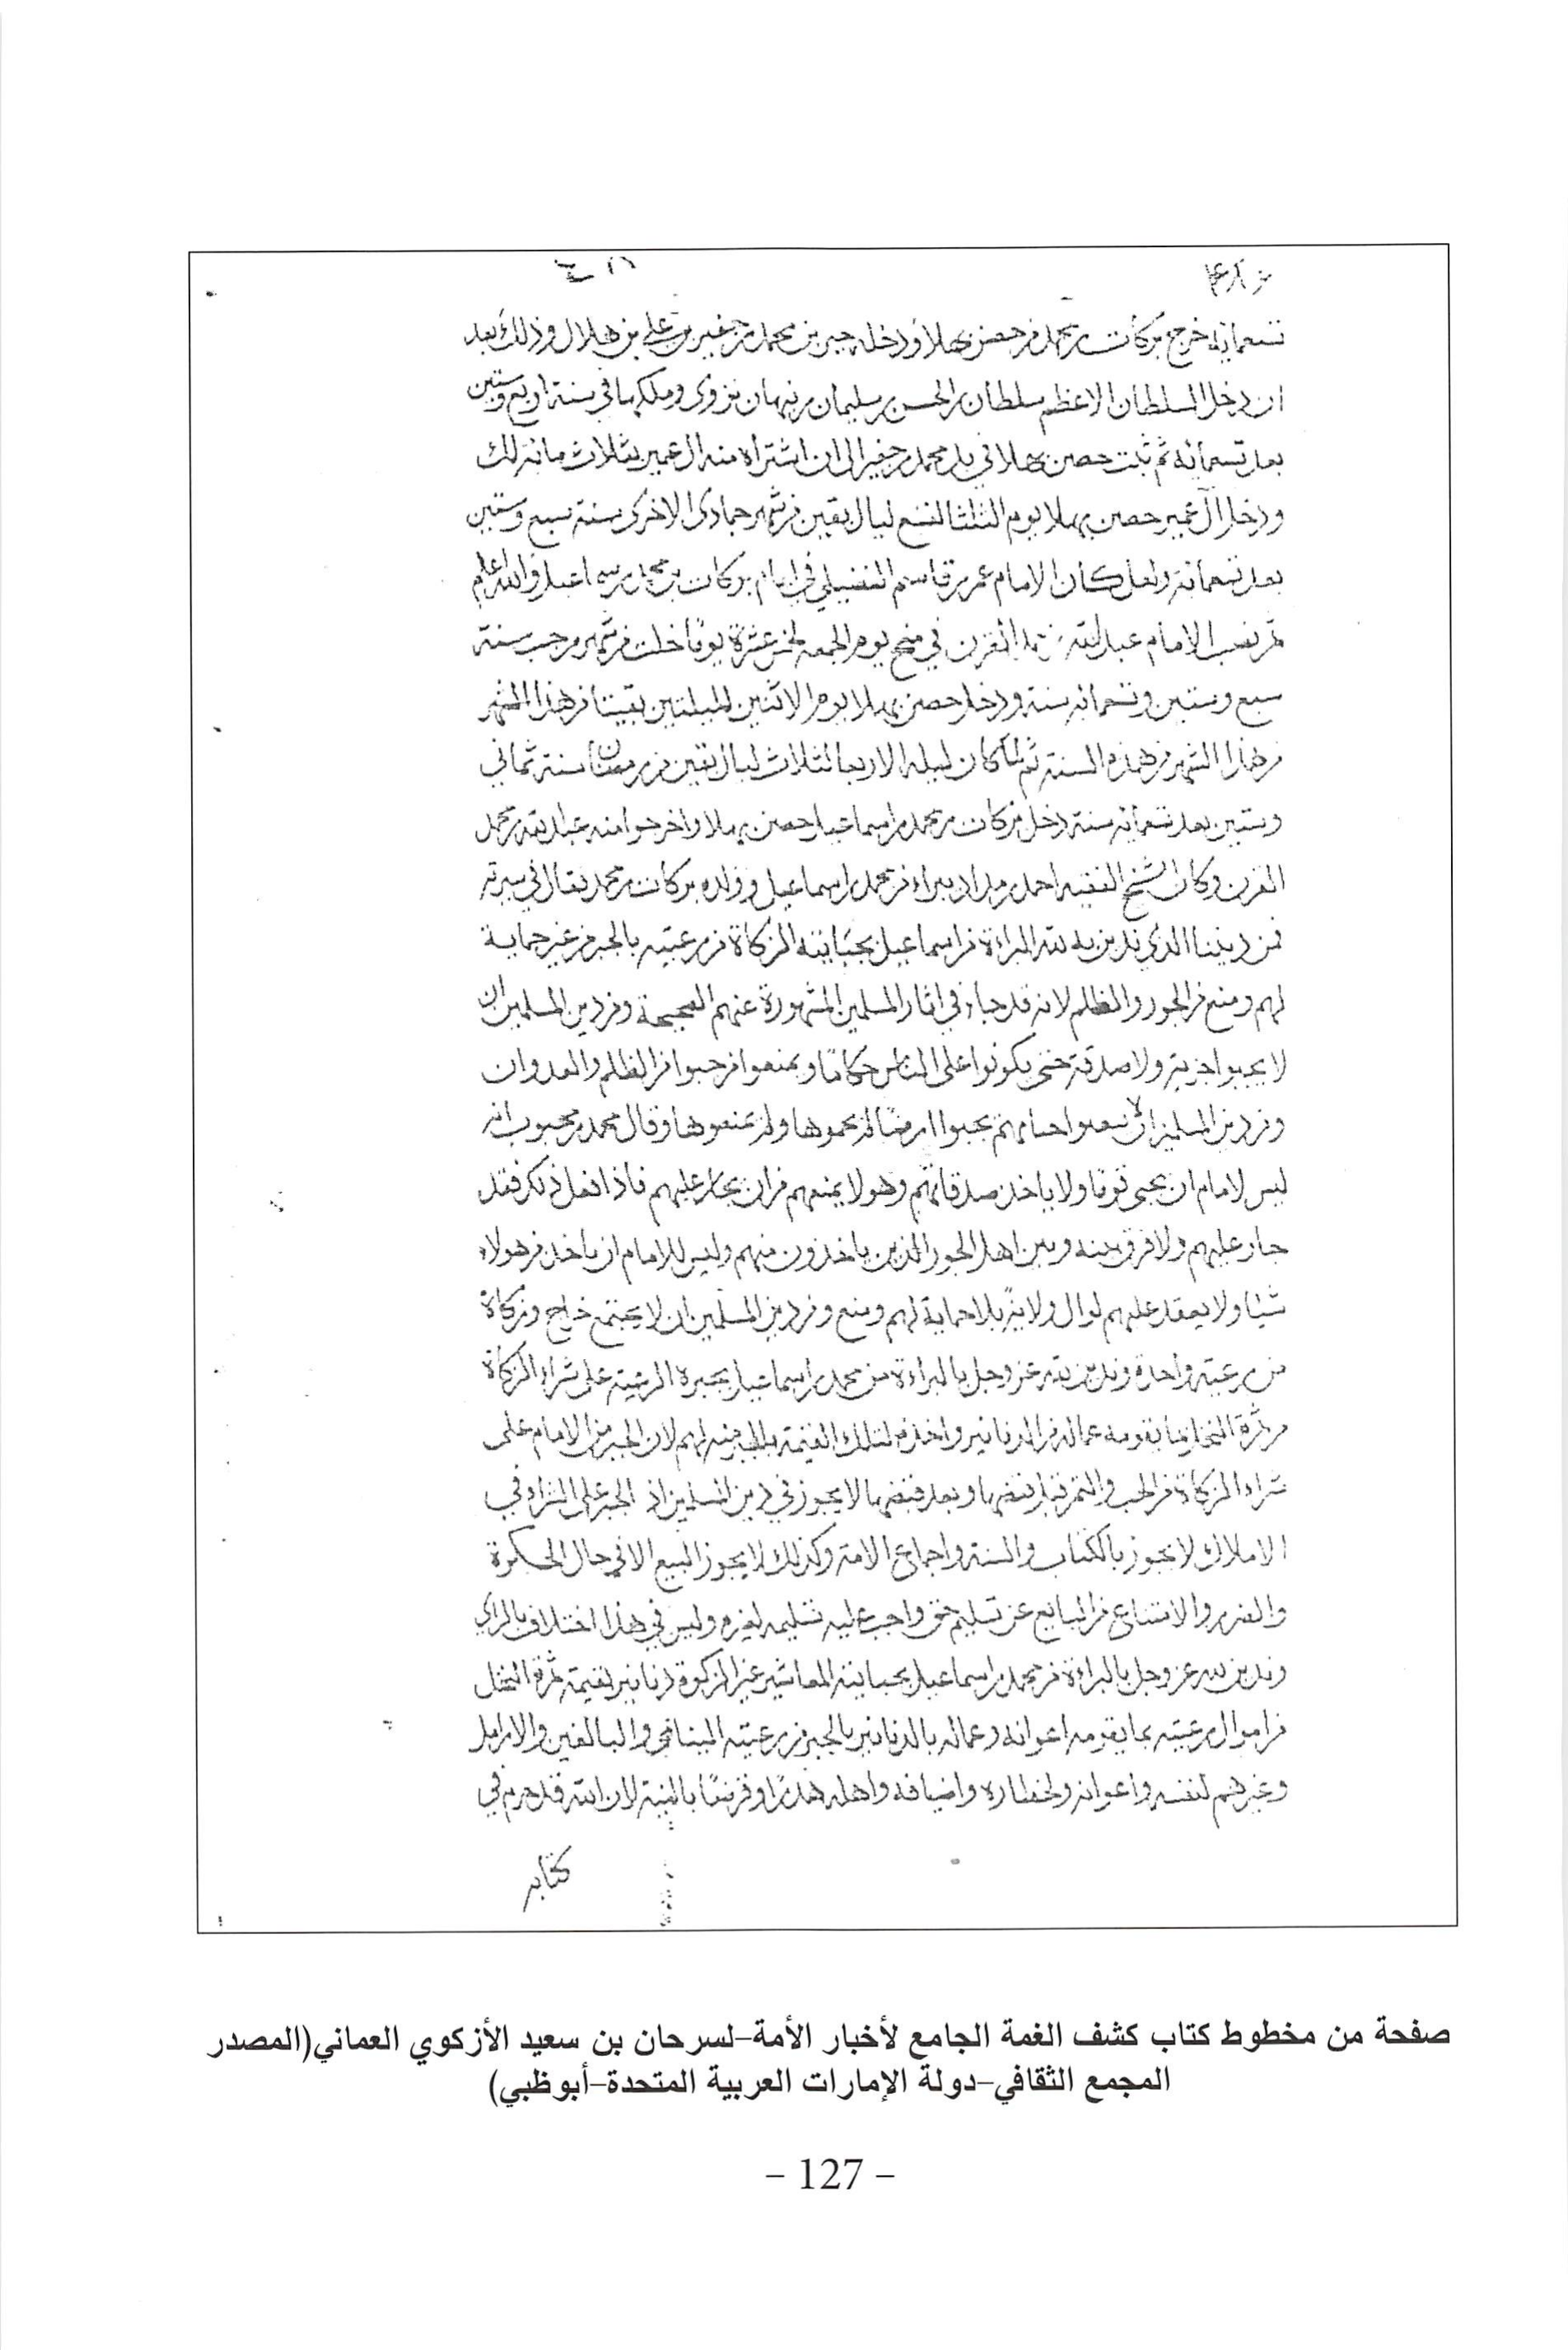 تسعمائة خرج بركات بن محمد من حصن بهلا ودخله بن محمد بن جفير بن علي بن هلال وذلك بعد
ان دخل السلطان الاعظم سلطان بن المحسن بن سليمان بن نبهان نزوى وملكها في سنة اربع وستين
بعد تسعمائة ثم ثبت حصن بهلا في يد محمد بن جفير الى ان اشتراه منه ال عمير بثلاث مائة لك
ودخل آل عمير حصن بهلا يوم الثلثا لتسع ليال بقين من شهر جمادى الاخرى سنة سبع وستين
بعد تسعمائة ولعل كان الامام عمر بن قاسم الفضيلي في ايام بركات بن محمد بن اسماعيل والله اعلم
ثم نصب الامام عبدالله بن محمد القرن في منح يوم الجمعه لخمس عشرة يوما خلت من شهر رجب سنة
سبع وستين وتسعمائه سنة ودخل حصن بهلا يوم الاثنين لليلتين بقيتا من هذا الشهر
من هذا الشهر من هذه السنة ثم لما كان ليله الاربعا لثلاث ليال بقين من رمضان سنة ثماني
وستين بعد تسعمائه سنة دخل بركات بن محمد بن اسماعيل حصن بهلا واخرجوا منه عبدالله بن محمد
القرن وكان الشيخ الفقيه احمد بن مداد يبراء من محمد بن اسماعيل وولده بركات بن محمد فقال في سيرته
فمن ديننا الذي ندين به لله البراءة من اسماعيل بجبايته الزكاة من رعيته بالجبر من غير حماية
لهم ومنع من الجور والظلم لانه قد جاء في اثار المسلمين المشهورة عنهم الصحيحة ومن دين المسلمين ان
لا يجبوا جزية ولا صدقة حتى يكونوا على الناس حكاما ويمنعوا من جبوا من الظلم والعدوان
ومن دين المسلمين ان يجبوا ارضا لم يحموها ولم يمنعوها وقال محمد بن محبوب انه
ليس لامام ان يجبى قوما ولا ياخذ صدقاتهم وهو لا يمنعهم من ان يجار عليهم فاذا فعل ذلك فقد
جار عليهم ولا فرق بينه وبين اهل الجور الذين ياخذون منهم وليس للامام ان ياخذ من هولاء
شيئا ولا يعقد عليهم لوال ولاية بلا حماية لهم ومنع ومن دين المسلمين ان لا يجتمع خراج وزكاة
من رعية واحدة وندين لله عز وجل بالبراءة من محمد بن اسماعيل بجبره الرعية على شراء الزكاة
من ثمرة النخل بما يقومه عماله من الدنانير واخذه لتلك القيمة بالجبر منه لهم لان الجبر من الامام على
شراء الزكاة من الحب والتمر قبل قبضها وبعد قبضها لا يجوز في دين المسلمين اذ الجبر على الشراء في
الاملاك لا يجوز بالكتاب والسنة واجماع الامة وكذلك لا يجوز البيع الا في حال الحكرة
والضرر والامتناع من البايع عن تسليم حق واجب عليه تسليمه لغيره وليس في هذا اختلاف بالراي
وندين لله عز وجل بالبراءة من محمد بن اسماعيل بجبايته المعاشير غير الزكوة دنانير بقيمة ثمرة النخل
من اموال رعيته بما يقومه اعوانه وعماله بالدنانير بالجبر من رعيته اليتامى والبالغين والارامل
وغيرهم لنفسه واعوانه ولخطاره واضيافه واهله هدرا وفرضا بالنية لان الله قد حرم في
كتابه
صفحة من مخطوط كتاب كشف الغمة الجامع لأخبار الأمة–لسرحان بن سعيد الأزكوي العماني(المصدر
المجمع الثقافي–دولة الإمارات العربية المتحدة–أبوظبي)
– 127 –